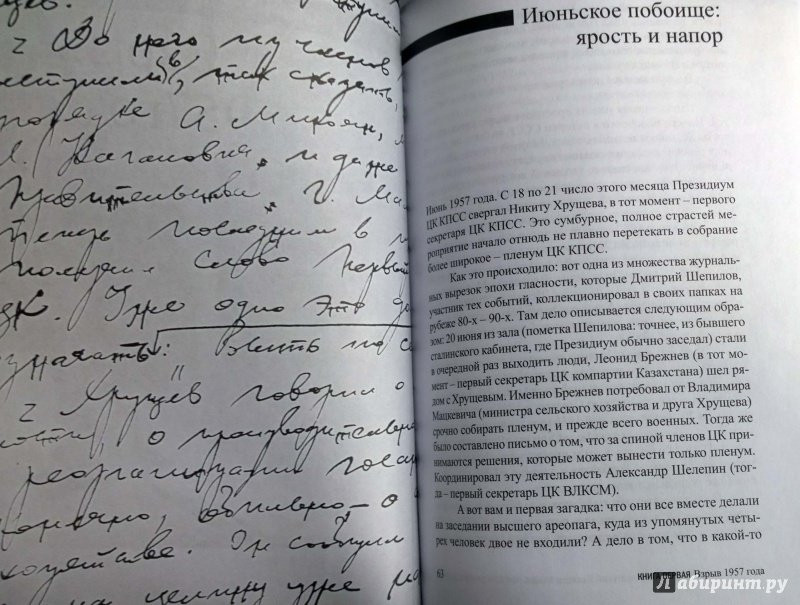 До него из членов
поступили, так сказать,
порядке А. Микоян,
Л. Каганович, и даже
правительства Г. Ма
теперь последним в
получил слово первый
ЦК. Уже одно это до
означать:
Хрущев говорил о
о производстве
реорганизации
хозяйстве. Он сообщил
на целину уже
Июньское побоище:
ярость и напор
Июнь 1957 года. С 18 по 21 число этого месяца Президиум
ЦК КПСС свергал Никиту Хрущева, в тот момент – первого
секретаря ЦК КПСС. Это сумбурное, полное страстей ме-
роприятие начало отнюдь не плавно перетекать в собрание
более широкое – пленум ЦК КПСС.
Как это происходило: вот одна из множества журналь-
ных вырезок эпохи гласности, которые Дмитрий Шепилов,
участник тех событий, коллекционировал в своих папках на
рубеже 80-х – 90-х. Там дело описывается следующим обра-
зом: 20 июня из зала (пометка Шепилова: точнее, из бывшего
сталинского кабинета, где Президиум обычно заседал) стали
в очередной раз выходить люди, Леонид Брежнев (в тот мо-
мент – первый секретарь ЦК компартии Казахстана) шел ря-
дом с Хрущевым. Именно Брежнев потребовал от Владимира
Мацкевича (министра сельского хозяйства и друга Хрущева)
срочно собирать пленум, и прежде всего военных. Тогда же
было составлено письмо о том, что за спиной членов ЦК при-
нимаются решения, которые может вынести только пленум.
Координировал эту деятельность Александр Шелепин (тог-
да – первый секретарь ЦК ВЛКСМ).
А вот вам и первая загадка: что они все вместе делали
на заседании высшего ареопага, куда из упомянутых четы-
рех человек двое не входили? А дело в том, что в какой-то
63 КНИГА ПЕРВАЯ Взрыв 1957 года
Лабиринт.ру